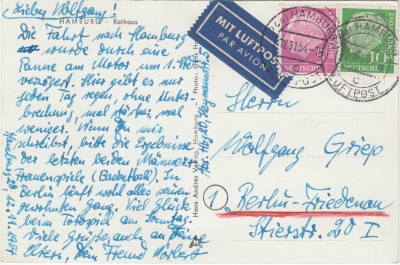 Lieber Wolfgang!
HAMBURG - Rathaus
Die Fahrt nach Hamburg
wurde durch eine
Panne am Motor um 1 Std
verzögert. Hier gibt es nur
jeden Tag regen, ohne Unter
brechen, mal stärker, mal
weniger. Wenn Du mir
schreibst, bitte die Ergebnisse
der letzten beiden Männer
Frauenspiele (Basketball). In
Berlin läuft wohl alles seinen
gewohnten Gang. Viel Glück
beim Totospiel am Sonntag
Viele Grüße, auch an Deine
Eltern, Dein Freund
Hamburg
Hans Andres Verlag, Hamburg
MIT LUFTPOST
PAR AVION
HAMBURG
LUFTPOST
DEUTSCHE
10
Herrn
Wolfgang Griep
1 Berlin-Friedenau
Stierstr. 20 I